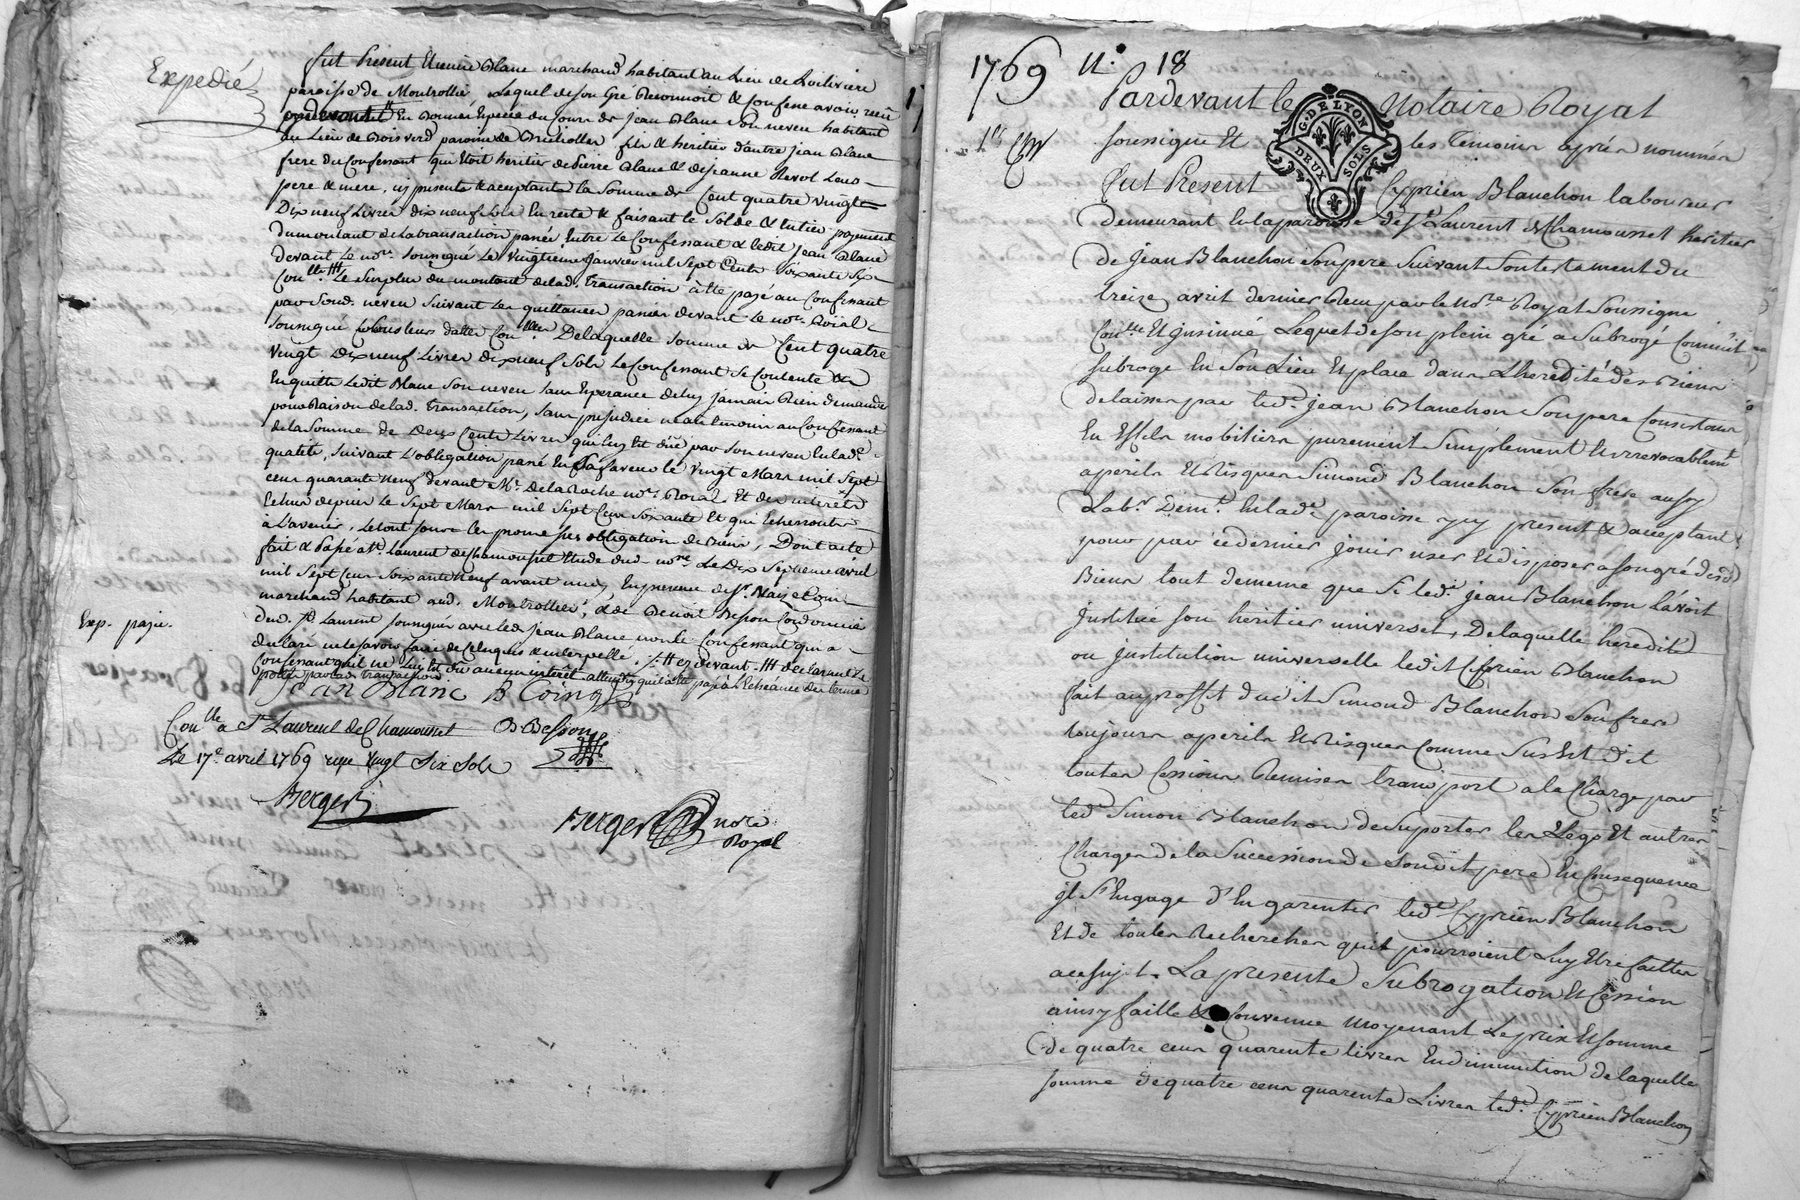 Expedié
fut Present Etienne Blanc marchand habitant au Lieu de
paroisse de Montrollier Lequel de son Gré Reconnoit & Confesse avoir reçu
En Bonnes Especes du jour de jean Blanc son neveu habitant
au Lieu de Boisverd paroisse de fils & heritier d'autre jean Blanc
frere du Confessant qui Etoit heritier de Pierre Blanc & de jeanne Revol Leurs
pere & mere, icy presents & acceptants la Somme de Cent quatre vingts
Dix neuf Livres dix neuf sols En reste & faisant le Solde & Entier payement
du montant de la transaction passée Entre Le Confessant & ledit jean Blanc
devant le no.re soussigné Le vingtieme janvier mil sept Cents soixante six
Con.llé ### Le surplus du montant de lad. transaction a Eté payé au Confessant
par sond. neveu suivant Les quittances passées devant le no.re Roïal
soussigné sous leurs dattes Con.llées De laquelle somme de Cent quatre
vingt Dix neuf Livres dix neuf Sols Le Confessant Se Contente &
En quitte Ledit Blanc Son neveu sans Esperance de luy jamais Rien demander
pour Raison de lad. transaction, sans prejudice neantmoins au Confessant
de la Somme de Deux Cents Livres qui luy Est düe par son neveu En lad.e
qualité, suivant L'obligation passée En Sa faveur le vingt Mars mil Sept
cens quarante neuf devant M.e DelaRoche no.re Royal Et des interets
Echus depuis Le Sept Mars mil Sept Cens Soixante Et qui Echerront
à L'avenir. Le tout sous les promesses obligation de biens, Dont acte
fait & Passé a S.t Laurent de Chamousset Etude dud. no.re Le Dix Septieme avril
mil Sept Cens Soixante neuf avant midy, En presence de S.r
marchand habitant aud. Montrollier, & de Benoit Besson Cordonnier
dud. S.t Laurent soussignés avec led. jean Blanc non le Confessant qui a
declaré ne le sçavoir faire de Ce Enquis & interpellé. cy devant. ### declarant Le
Confessant qu'il ne luy Est dû aucun interêt attendu qu'il a Eté payé à L'Echéance des termes
portés par lad. transaction
Jean Blanc B Coing
Exp. payée.
Con.llé a S.t Laurent de Chamousset B Besson
Le 17.e avril 1769 reçu vingt Six Sols
Berger
Berger no.re
Royal
1769 N.° 18
G. DE LYON
DEUX SOLS
1.re
Pardevant le Notaire Royal
soussigné Et les Temoins après nommés
Fut Present Cyprien Blanchon laboureur
demeurant En la paroisse de S.t Laurent de Chamousset heritier
de jean Blanchon son pere Suivant Son testament du
treize avril dernier Reçu par le No.re Royal Soussigné
Con.llé Et jnsinué Lequel de son plein gré a Subrogé Comme il
subroge En Son Lieu Et place dans L'heredité des Biens
delaissés par led.t jean Blanchon Son pere Consistans
En Effets mobiliers purement Simplement Et irrevocablem.t
a perils Et Risques Simond Blanchon Son frere aussy
Lab.r Dem.t En lad.e paroisse icy present & acceptant
pour par ce dernier jouir user Et disposer a son gré desd.
Biens tout de meme que Si led.t jean Blanchon L'avoit
jnstitué son heritier universel, De laquelle heredité
ou jnstitution universelle ledit Cyprien Blanchon
fait au proffit dudit Simond Blanchon Son frere
toujours a perils Et Risques Comme Sus Est dit
toutes Cessions Remises transport a la Charge par
led.t Simon Blanchon de Suporter les Legs Et autres
Charges de la Succession de Sondit pere En Consequence
jl S'Engage d'En garentir led.t Cyprien Blanchon
Et de toutes Recherches qui pourroient Luy Etre faittes
a ce sujet. La presente Subrogation Et Cession
ainsy faitte & Convenue moyenant Le prix Et somme
de quatre cens quarente livres En diminution de laquelle
somme de quatre cens quarente Livres led.t Cyprien Blanchon